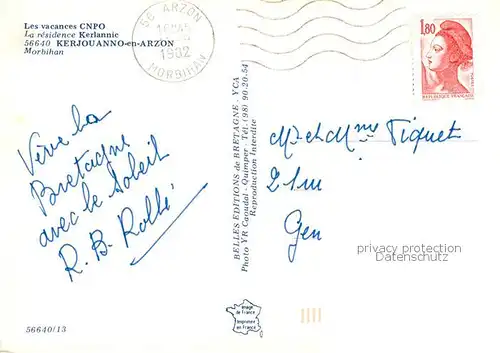 Les vacances CNPO
La résidence Kerlannic
56640 KERJOUANNO-en-ARZON
Morbihan
56 ARZON
1982
MORBIHAN
1,80
REPUBLIQUE FRANCAISE
Vive la
Bretagne
avec le Soleil
R. B. Rollé
BELLES EDITIONS de BRETAGNE YCA
Photo YR Caoudal - Quimper - Tél. (98) 90.20.54
Reproduction Interdite
M. et Mme Piquet
Gen
privacy protection
Datenschutz
Image
de France
Imprimée
en France
56640/13